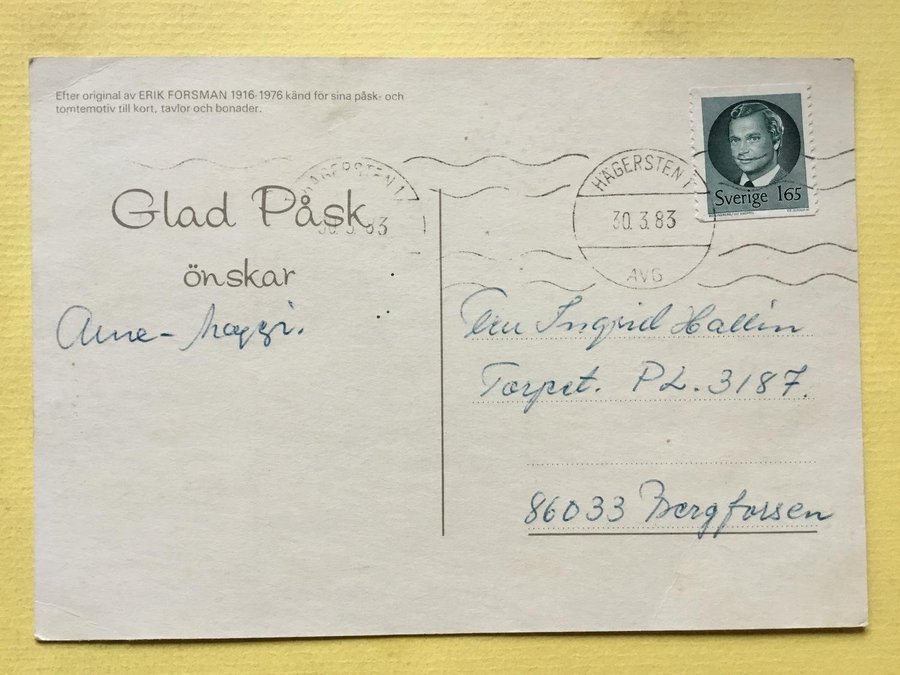 Efter original av ERIK FORSMAN 1916-1976 känd för sina påsk- och
tomtemotiv till kort, tavlor och bonader.
Sverige 165
HÄGERSTEN 1
30.3.83
AVG
HÄGERSTEN 1
30.3.83
Glad Påsk
önskar
Anne-Maggi.
Fru Ingrid Hallin
Torpet. PL. 3187.
86033 Bergforsen